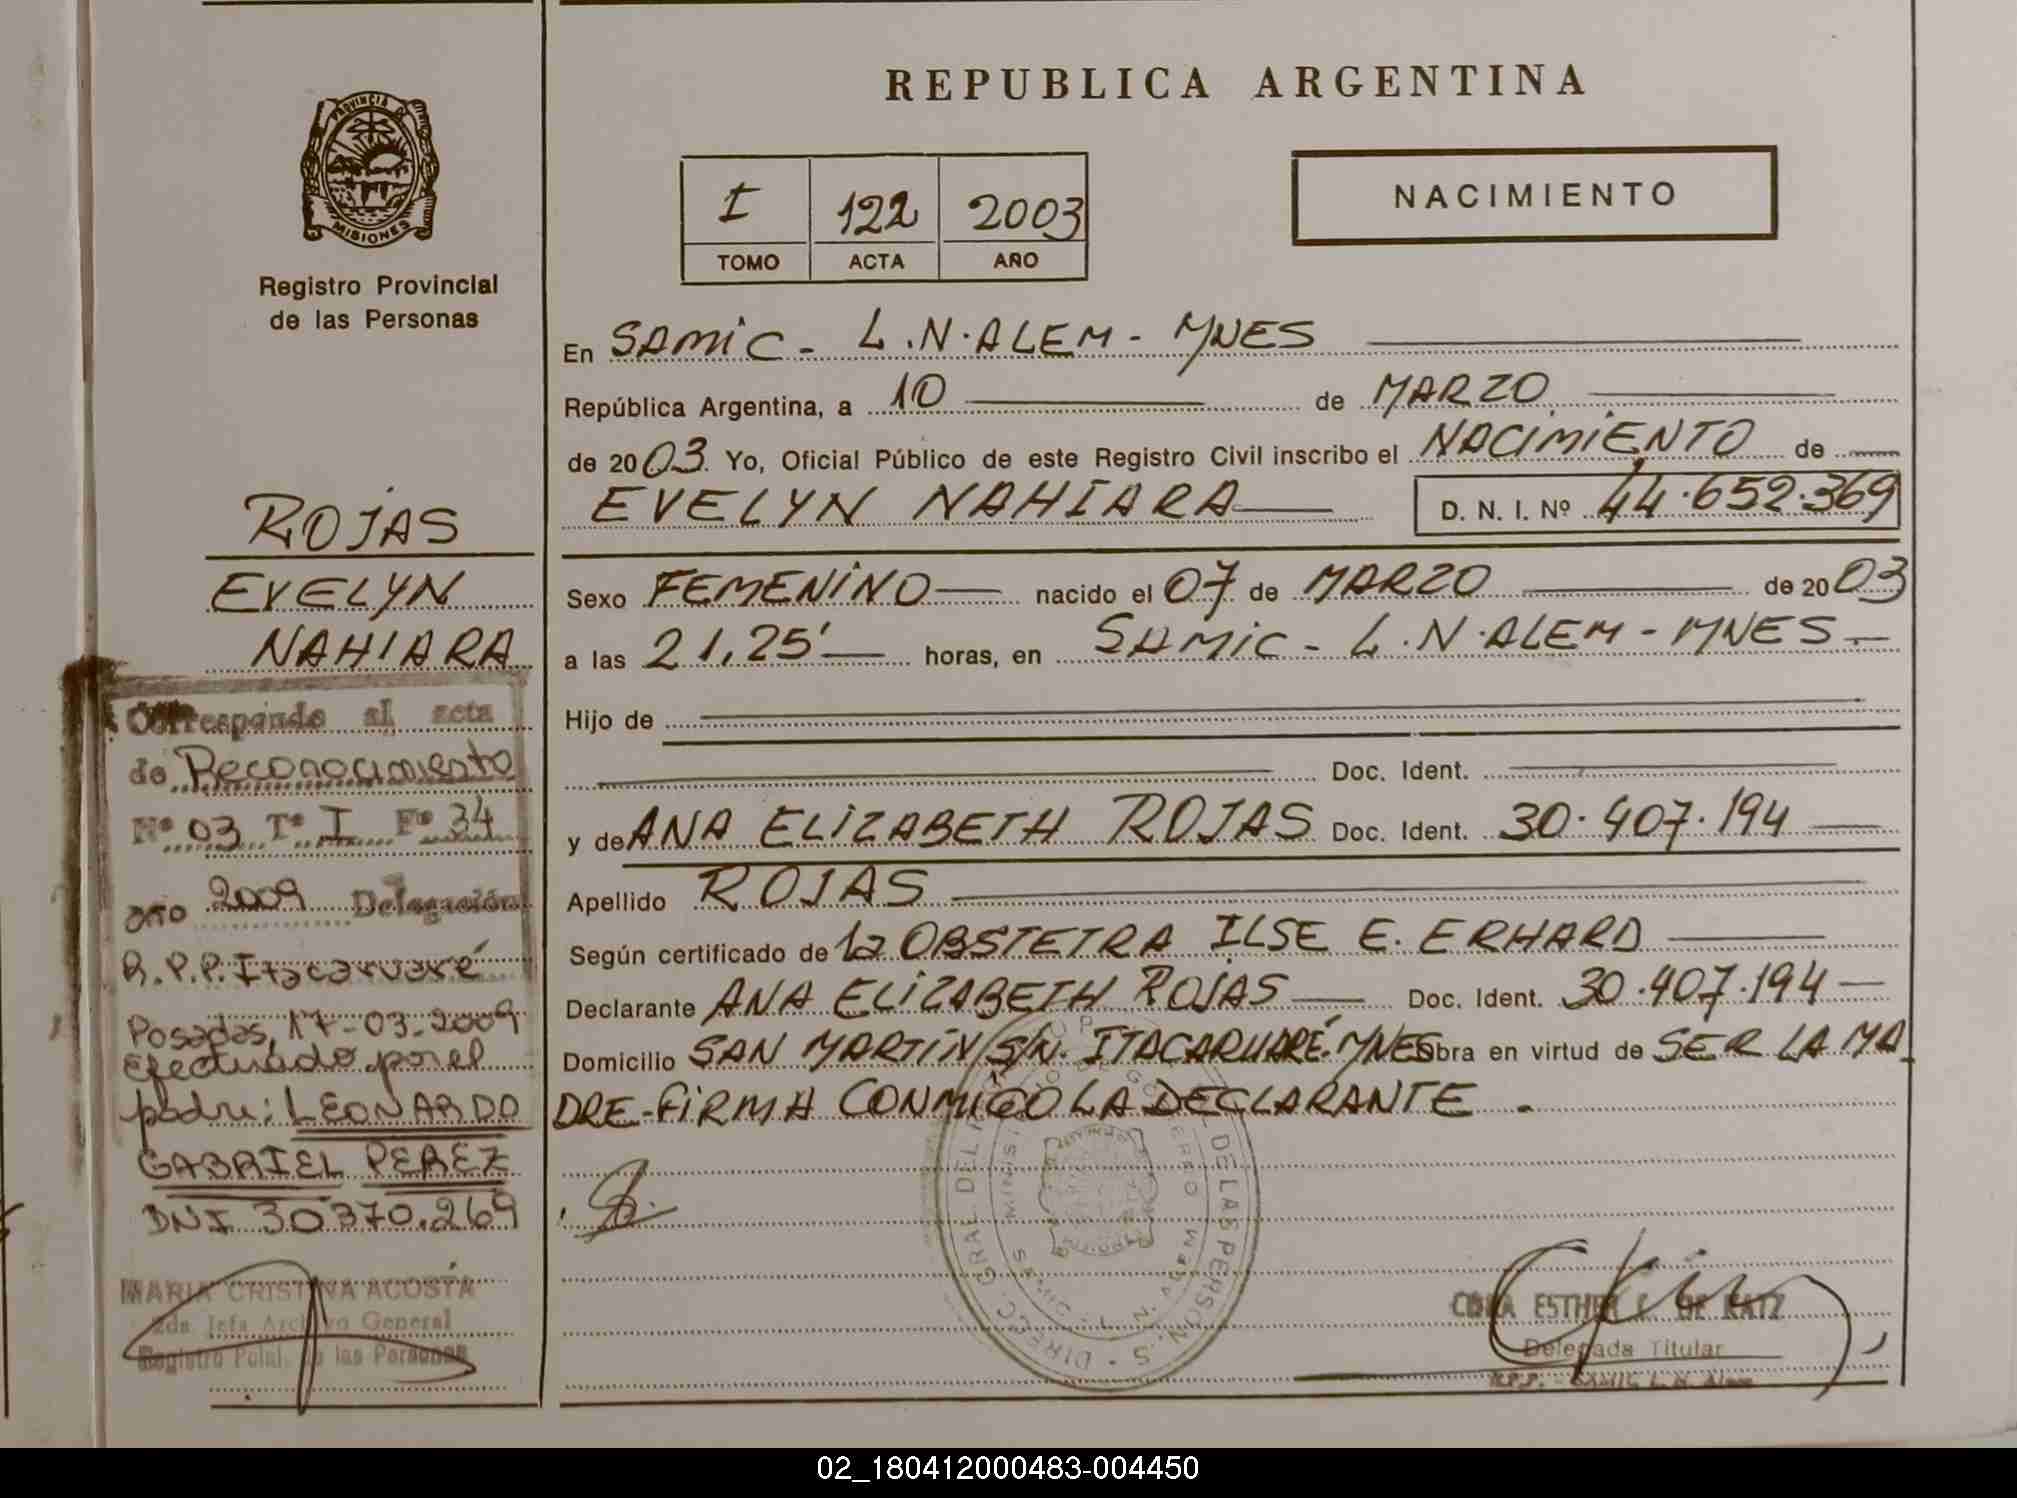 REPUBLICA ARGENTINA
PROVINCIA DE
MISIONES
Registro Provincial
de las Personas
I 122 2003
TOMO ACTA AÑO
NACIMIENTO
En SAMIC - L.N.ALEM - MNES
República Argentina, a 10 de MARZO
de 2003 Yo, Oficial Público de este Registro Civil inscribo el NACIMIENTO de
EVELYN NAHIARA D. N. I. Nº 44.652.369
Sexo FEMENINO nacido el 07 de MARZO de 2003
a las 21,25' horas, en SAMIC - L.N.ALEM - MNES
Hijo de
Doc. Ident.
y de ANA ELIZABETH ROJAS Doc. Ident. 30.407.194
Apellido ROJAS
Según certificado de la OBSTETRA ILSE E. ERHARD
Declarante ANA ELIZABETH ROJAS Doc. Ident. 30.407.194
Domicilio SAN MARTIN S/N. ITACARUARÉ. MNES obra en virtud de SER LA MA
DRE - FIRMA CONMIGO LA DECLARANTE.
ROJAS
EVELYN
NAHIARA
Corresponde al acta
de Reconocimiento
Nº 03 Tº I Fº 34
año 2009 Delegación
R.P.P. Itacaruaré
Posadas, 17-03-2009
Efectuado por el
padre: LEONARDO
GABRIEL PEREZ
DNI 30370.269
MARIA CRISTINA ACOSTA
2da. Jefa Archivo General
Registro Pcial. de las Personas
DIREC. GRAL DEL DE LAS PERSON.
ESTHER C. DE KATZ
Delegada Titular
R.P.P. - SAMIC L. N. Alem
02_180412000483-004450